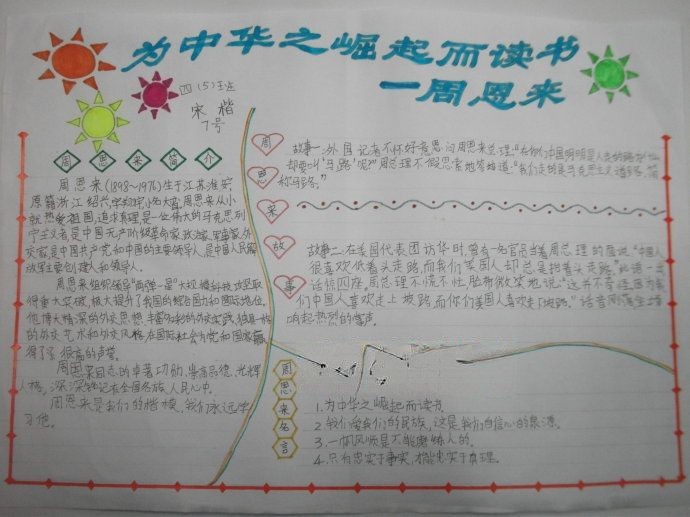 为中华之崛起而读书
—周恩来
四(5)班
宋楷
7号
周恩来简介
周恩来(1898~1976)生于江苏淮安,
原籍浙江绍兴,字翔宇,小名大鸾,周恩来从小
就热爱祖国,追求真理是一位伟大的马克思列
宁主义者是中国无产阶级革命家,政治家,军事家,外
交家,是中国共产党和中国的主要领导人,是中国人民解
放军主要创建人和领导人。
周恩来组织领导"两弹一星"大规模科技攻坚取
得重大突破,极大提升了我国的综合国力和国际地位。
他博大精深的外交思想、丰富多彩的外交实践,独具一格
的外交艺术和外交风格在国际社会为党和国家赢
得了了很高的声誉。
周恩来同志的卓著功勋,崇高品德,光辉
人格,深深铭记在全国各族人民心中。
周恩来是我们的楷模,我们永远学
习他。
周恩来故事
故事一:外国记者不怀好意思问周恩来总理:"在你们中国明明是人走的路为什么
却要叫'马路'呢?"周总理不假思索地答道:"我们走的是马克思主义道路,简
称马路。"
故事二:在美国代表团访华时,曾有一名官员当着周总理的面说:"中国人
很喜欢低着头走路,而我们美国人却总是抬着头走路。"此语一出
话惊四座,周总理不慌不忙,脸带微笑地说:"这并不奇怪,因为我
们中国人喜欢走上坡路,而你们美国人喜欢走下坡路。"话音刚落全场
响起热烈的掌声。
周恩来名言
1.为中华之崛起而读书
2.我们爱我们的民族,这是我们自信心的泉源。
3.一帆风顺是不能磨炼人的。
4.只有忠实于事实,才能忠实于真理。